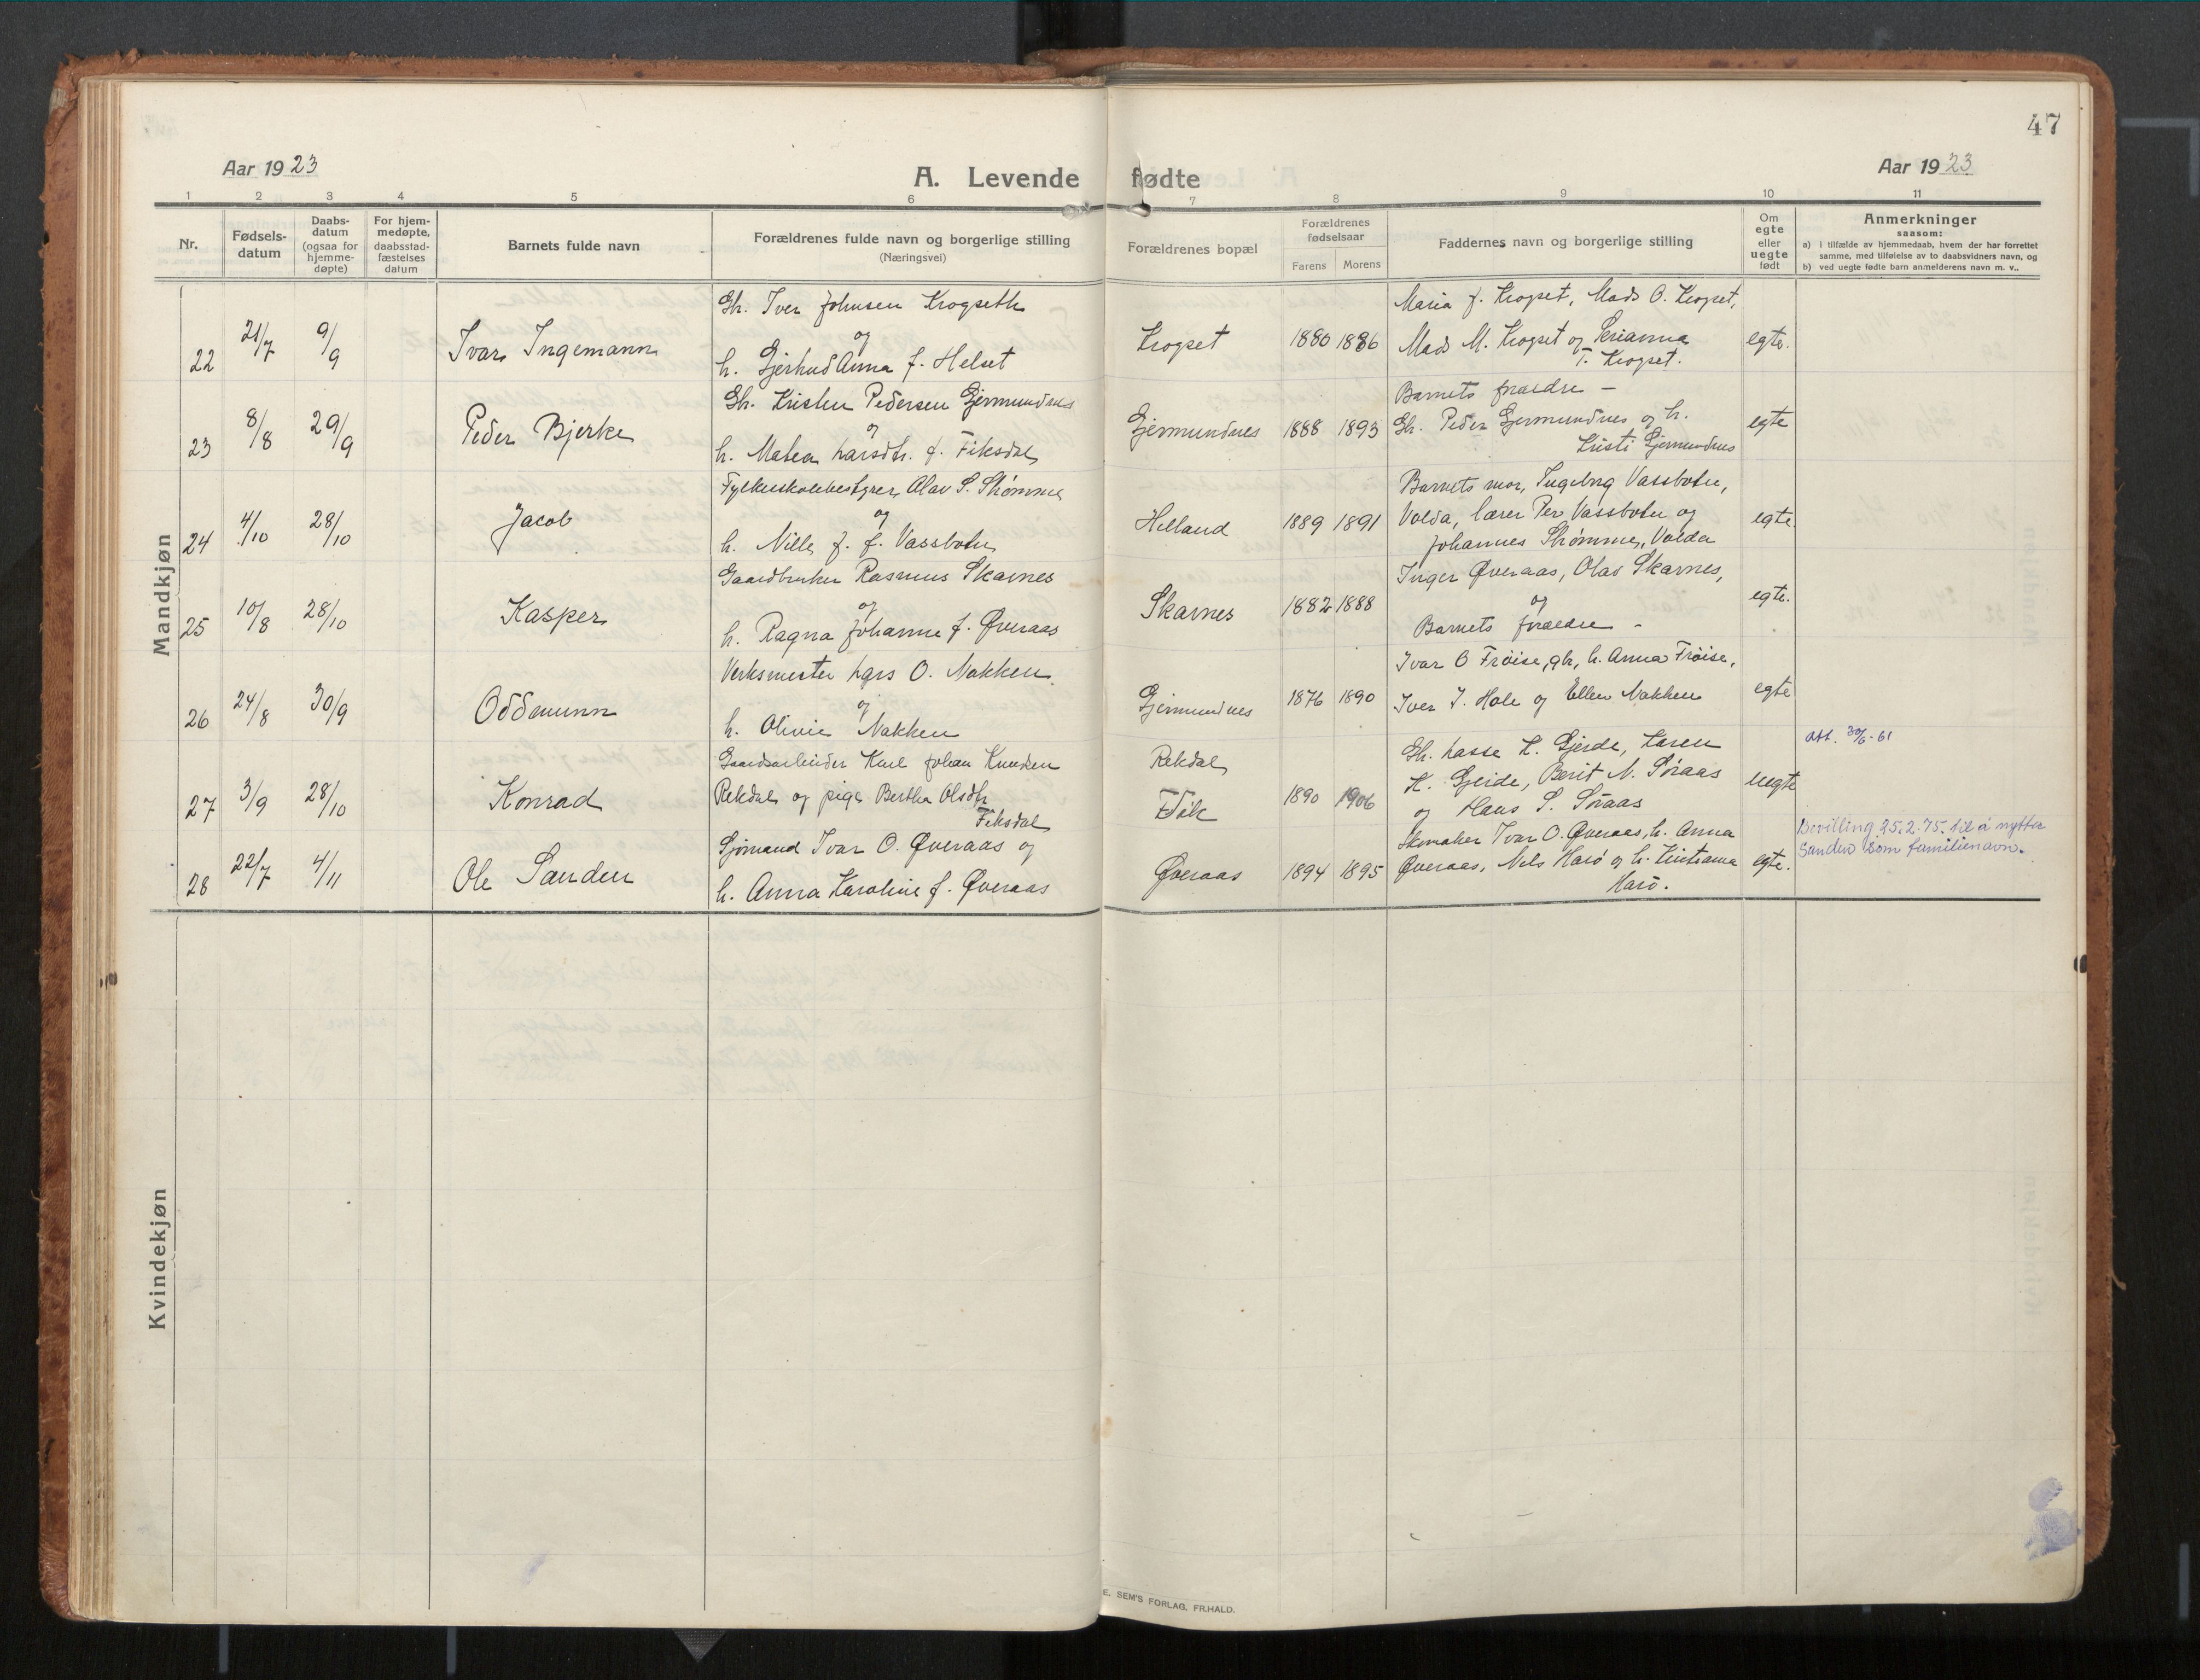 47
Aar 1923
A. Levende fødte
Aar 1923
1 2 3 4 5 6 7 8 9 10 11
Nr.
Fødsels-
datum
Daabs-
datum
(ogsaa for
hjemme-
døpte)
For hjem-
medøpte,
daabsstad-
fæstelses
datum
Barnets fulde navn
Forældrenes fulde navn og borgerlige stilling
(Næringsvei)
Forældrenes bopæl
Forældrenes
fødselsaar
Farens Morens
Faddernes navn og borgerlige stilling
Om
egte
eller
uegte
født
Anmerkninger
saasom:
a) i tilfælde av hjemmedaab, hvem der har forrettet
samme, med tilføielse av to daabsvidners navn, og
b) ved uegte fødte barn anmelderens navn m. v..
Mandkjøn
22 21/7 9/9 Ivar Ingemann
Gbr. Iver Johnsen Krogseth
og
h. Gjerhud Anna f. Helset
Kropset 1880 1886
Maria J. Kropset, Mads O. Kropset,
Mads M. Kropset og Serianna
T. Kropset.
egte.
23 8/8 29/9 Peder Bjerke
Gbr. Kristen Pedersen Gjermundnes
og
h. Matea Larsdtr. f. Fiksdal
Gjermundnes 1888 1893
Barnets foraeldre –
Gbr. Peder Gjermundnes og h.
Kristi Gjermundnes
egte
24 4/10 28/10 Jacob
Fylkesskolebestyrer Olav S. Strømme
og
h. Nille J. f. Vassbotn
Helland 1889 1891
Barnets mor, Ingeborg Vassbotn,
Volda, lærer Per Vassbotn og
Johannes Strømme, Volda
egte.
25 10/8 28/10 Kasper
Gaardbruker Rasmus Skarnes
og
h. Ragna Johanne f. Øveraas
Skarnes 1882 1888
Inger Øveraas, Olav Skarnes,
og
Barnets foraeldre –
egte.
26 24/8 30/9 Oddmunn
Verksmester Lars O. Nakken
og
h. Olivie Nakken
Gjermundnes 1876 1890
Ivar O Frøise, gbr, h. Anna Frøise,
Iver I. Hole og Ellen Nakken
egte
27 3/9 28/10 Konrad
Gaardsarbeider Karl Johan Knudsen
Rekdal og pige Bertha Olsdtr
Fiksdal
Rekdal
Fik
1890 1906
Gbr. Lasse K. Gjerde, Karen
K. Gjerde, Berit N. Søraas
og Hans S. Søraas
uegte
att. 30/6-61
28 22/7 4/11 Ole Sanden
Sjømand Ivar O. Øveraas og
h. Anna Karoline f. Øveraas
Øveraas 1894 1895
Skomaker Ivar O. Øveraas, h. Anna
Øveraas, Nels Harø og h. Kristianna
Harø.
egte.
Bevilling 25.2.75. til å nytta
Sanden som familienavn.
Kvindekjøn
E. SEM'S FORLAG. FR.HALD.